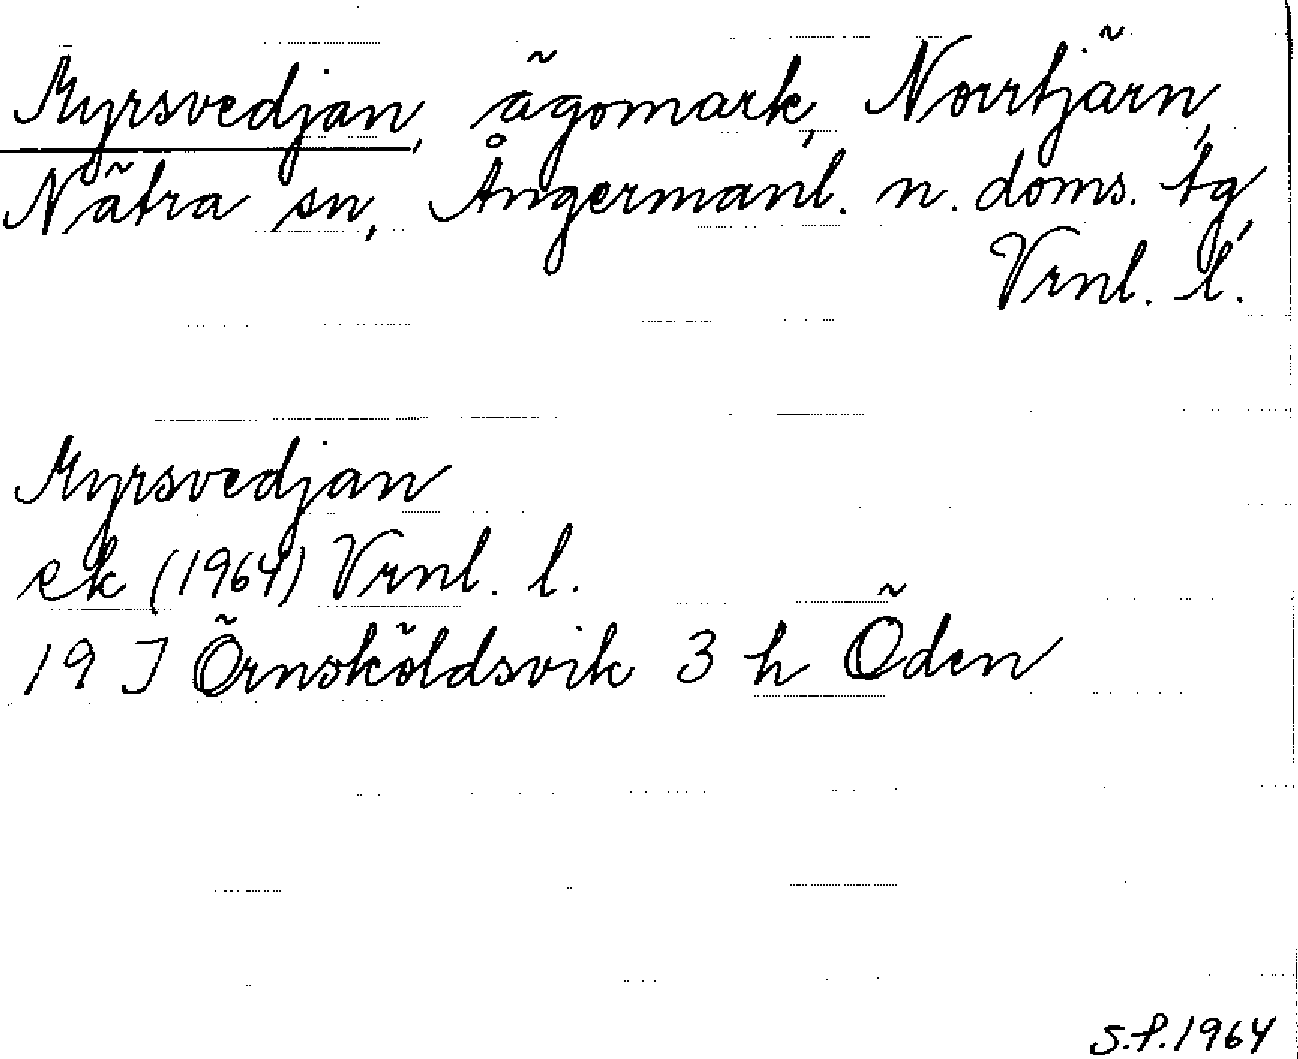 Myrsvedjan, ägomark, Norrtjärn,
Nätra sn, Ångermanl. n. doms. tg,
Vrnl. l.
Myrsvedjan
ek (1964) Vrnl. l.
19 J Örnsköldsvik 3 h Öden
S.F. 1964